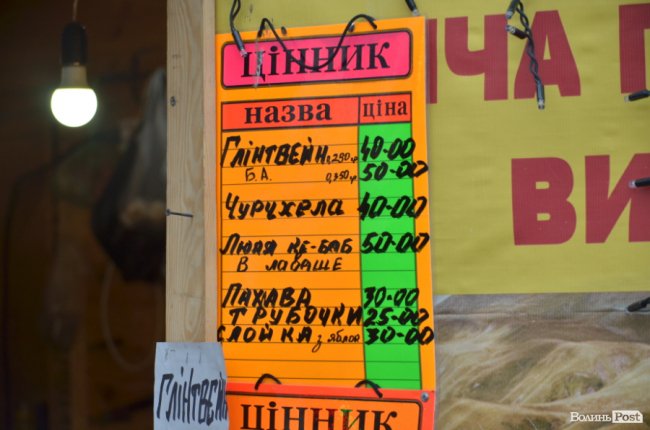 ЦІННИК
НАЗВА ЦІНА
Глінтвейн 0,290 г 40-00
Б.А. 0,350 г 50-00
Чурчхела 40-00
Люля ке-баб 50-00
в лаваше
Пахава 30-00
Трубочки 25-00
слойка з яблок 30-00
ЦІННИК
ГЛІНТВЕЙН
ЧА
ВИ
ВолиньPost